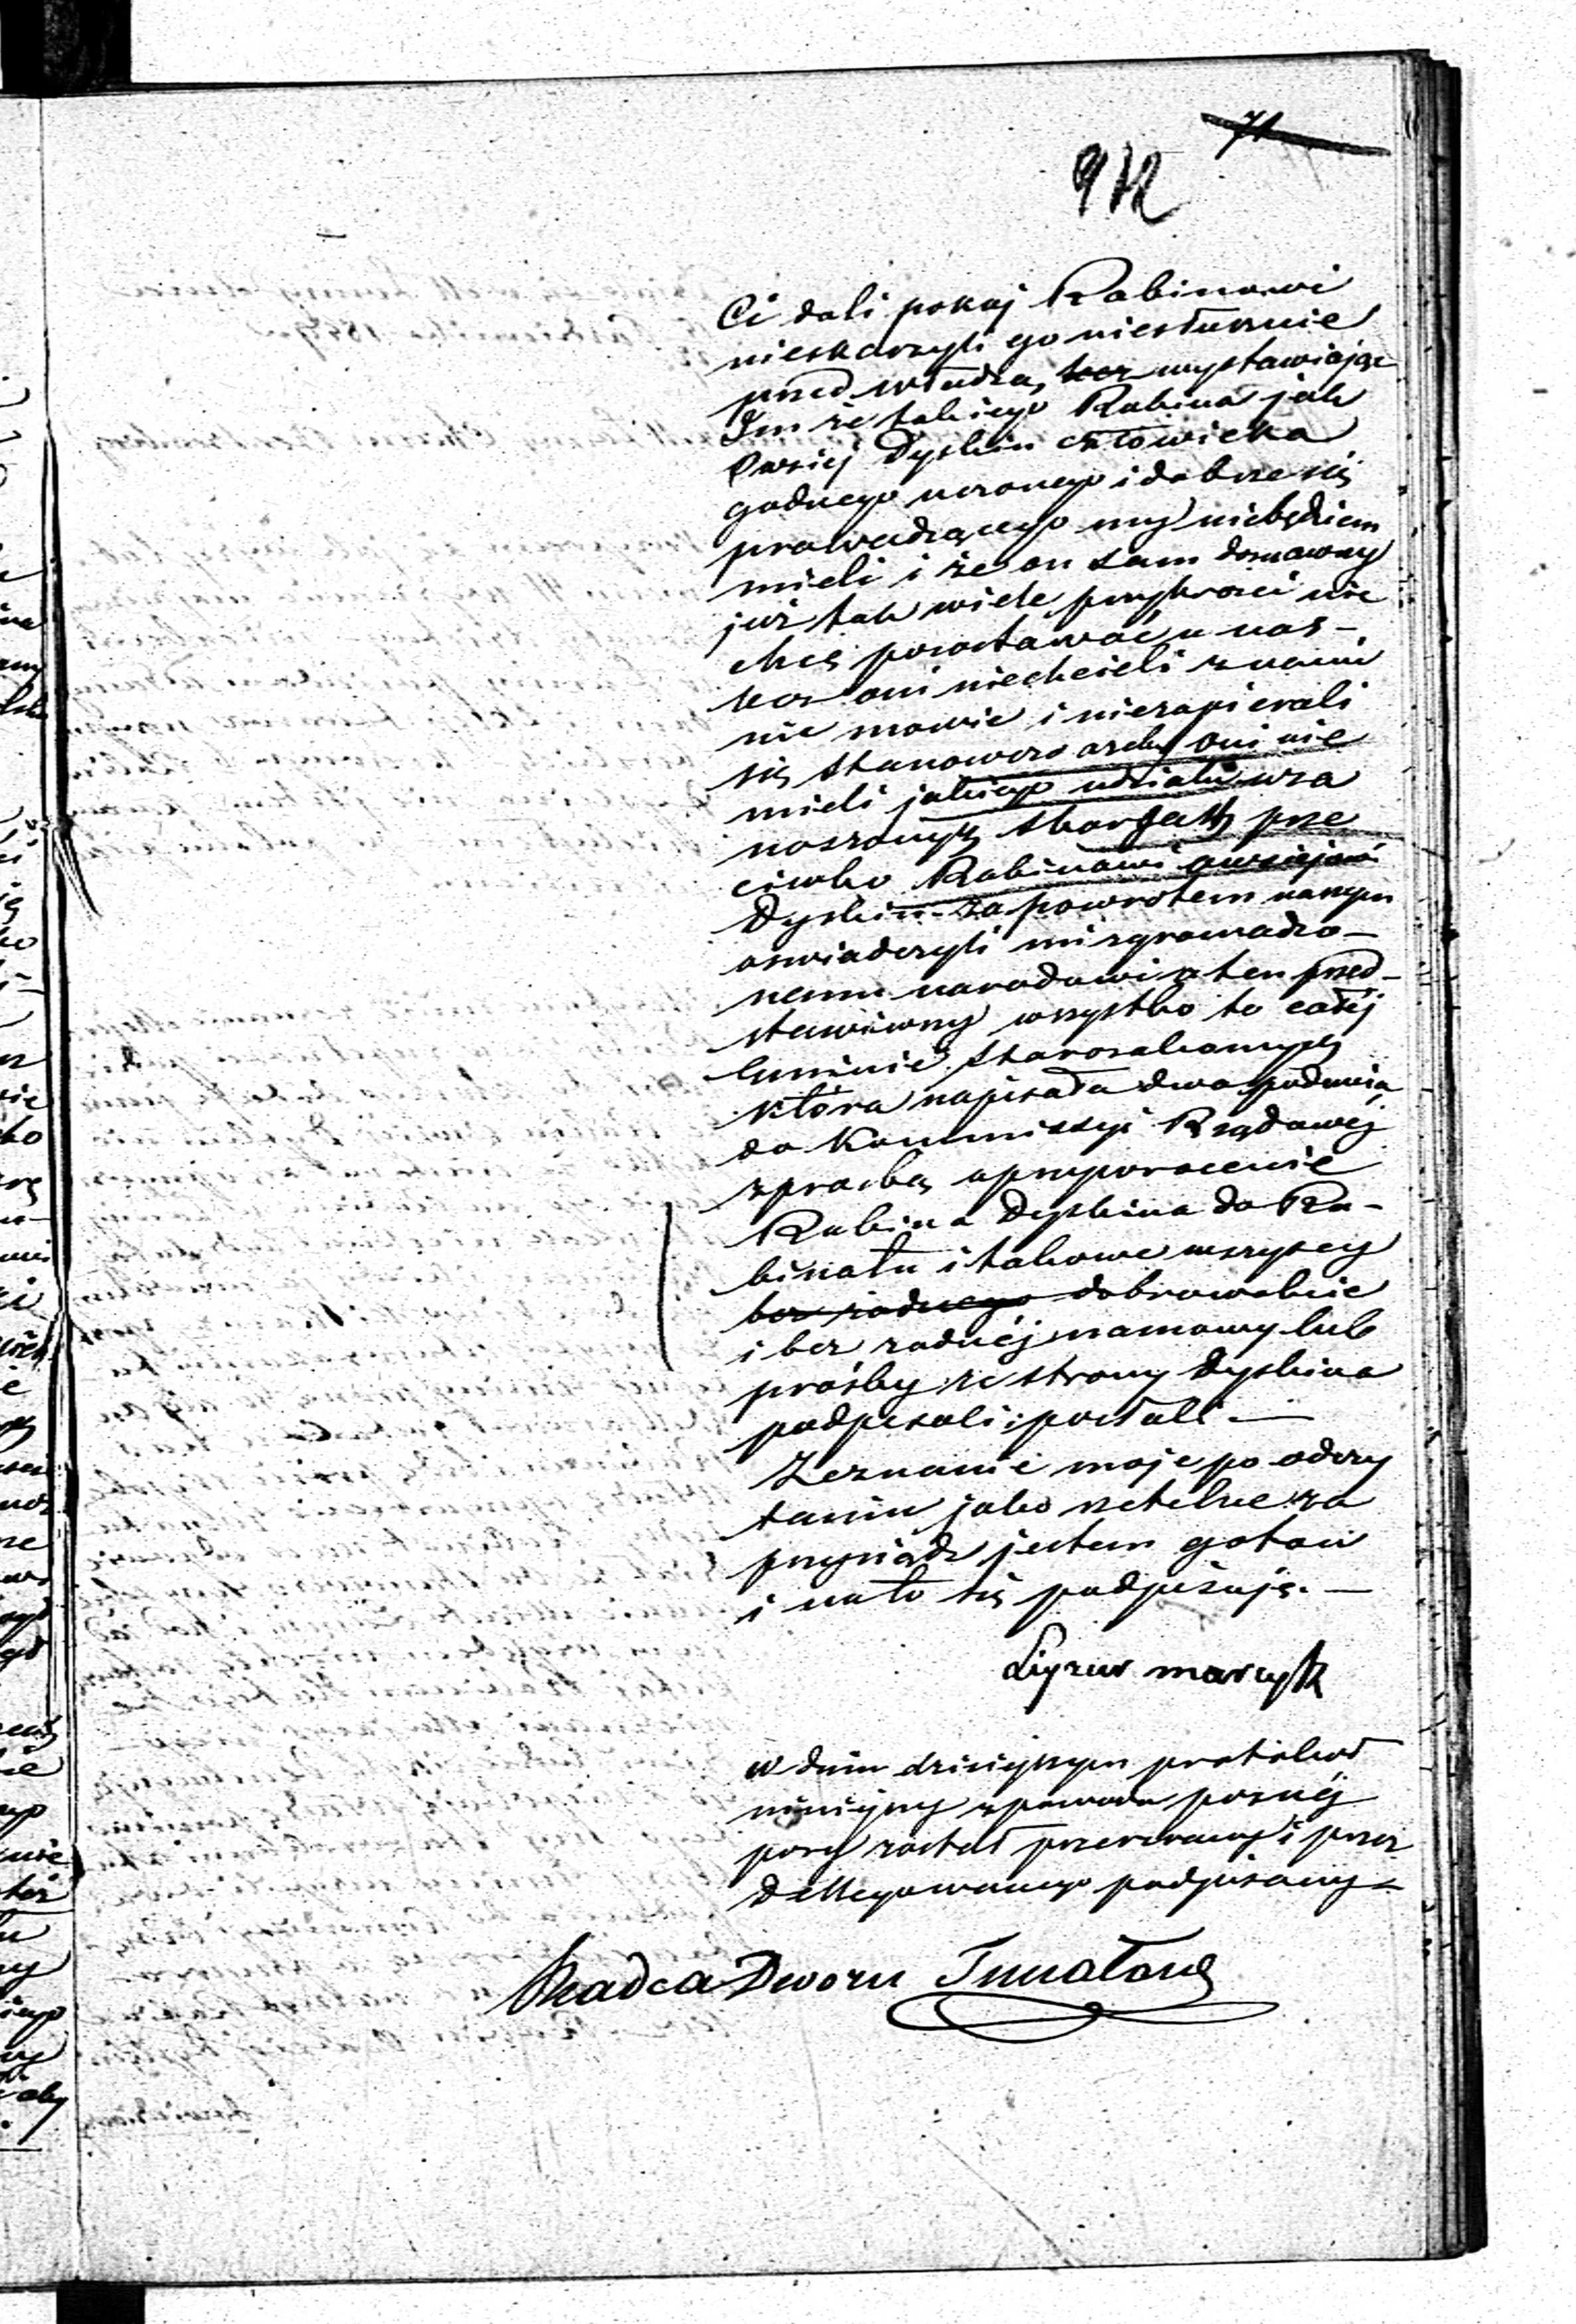 71
Ci dali pokoj Rabinowi
nieskarzyli go niesłusznie
przed władzą, lecz wystawiając
Im że takiego Rabina jak
Owsiej Dyskin człowieka
godnego uczonego i dobrze się
prowadzącego my niebędziem
mieli i że on sam doznawszy
już tak wiele przykrości nie
chcę pozostawać u nas –
lecz oni niechcieli z nami
nic mowic i niezapierali
się stanowczo azeby oni nie
mieli jakiego udziału w za
noszonych skargach prze
ciwko Rabinowi Owsiejowi
Dyskin – za powrotem naszym
oswiadczyli mi zgromadzo–
nemu narodowi a ten przed–
stawiwszy wszystko to całéj
Gminie Starozakonnych
która napisała dwa podania
do Kommissyi Rządowéj
z prosbą o przywrocenie
Rabina Dyskina do Ra–
binatu i takowe wszyscy
bez żadnego dobrowolnie
i bez zadnéj namowy lub
prośby ze strony Dyskina
podpisali i posłali –
Zeznanie moje po odczy
taniu jako rzetelne za
przysiądz jestem gotow
i na to się podpisuję. –
w dniu dzisiejszym protokuł
niniejszy z powodu poznéj
pory został przerwany i przez
Dellegowanego podpisany –
Radca Dworu